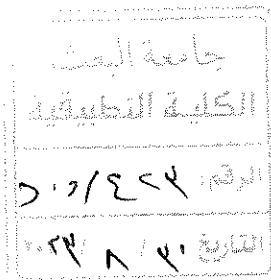 جامعة البعث
الكلية التطبيقية
الرقم:
التاريخ ٣١ / ٨ / ٢٠٢٣